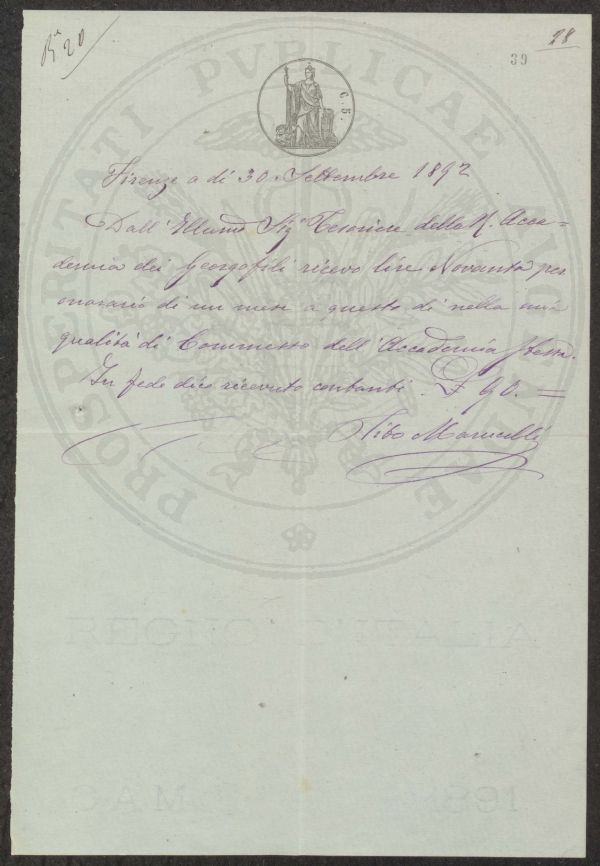 Ra 20
28
39
C. 5.
PROSPERITATI PVBLICAE AVGENDAE
Firenze a dì 30 Settembre 1892
Dall' Illumo Sigr Tesoriere della R. Acca-
demia dei Georgofili ricevo lire Novanta per
onorario di un mese a questo dì nella mia
qualità di Commesso dell' Accademia stessa.
In fede dico ricevuto contanti. £ 90. =
Tito Marucelli
REGNO D'ITALIA